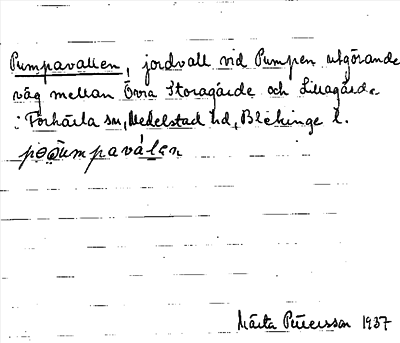 Pumpavallen, jordvall vid Pumpen utgörande
väg mellan Övra Storagärde och Lillagärde
i Förkärla sn, Medelstad hd, Blekinge l.
Märta Petersson 1937